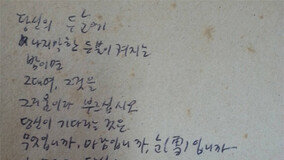 당신의 두 눈에
나지막한 등불이 켜지는
밤이면
그대여, 그것을
그리움이라 부르십시오
당신이 기다리는 것은
무엇입니까, 바람입니까, 눈(雪)입니까